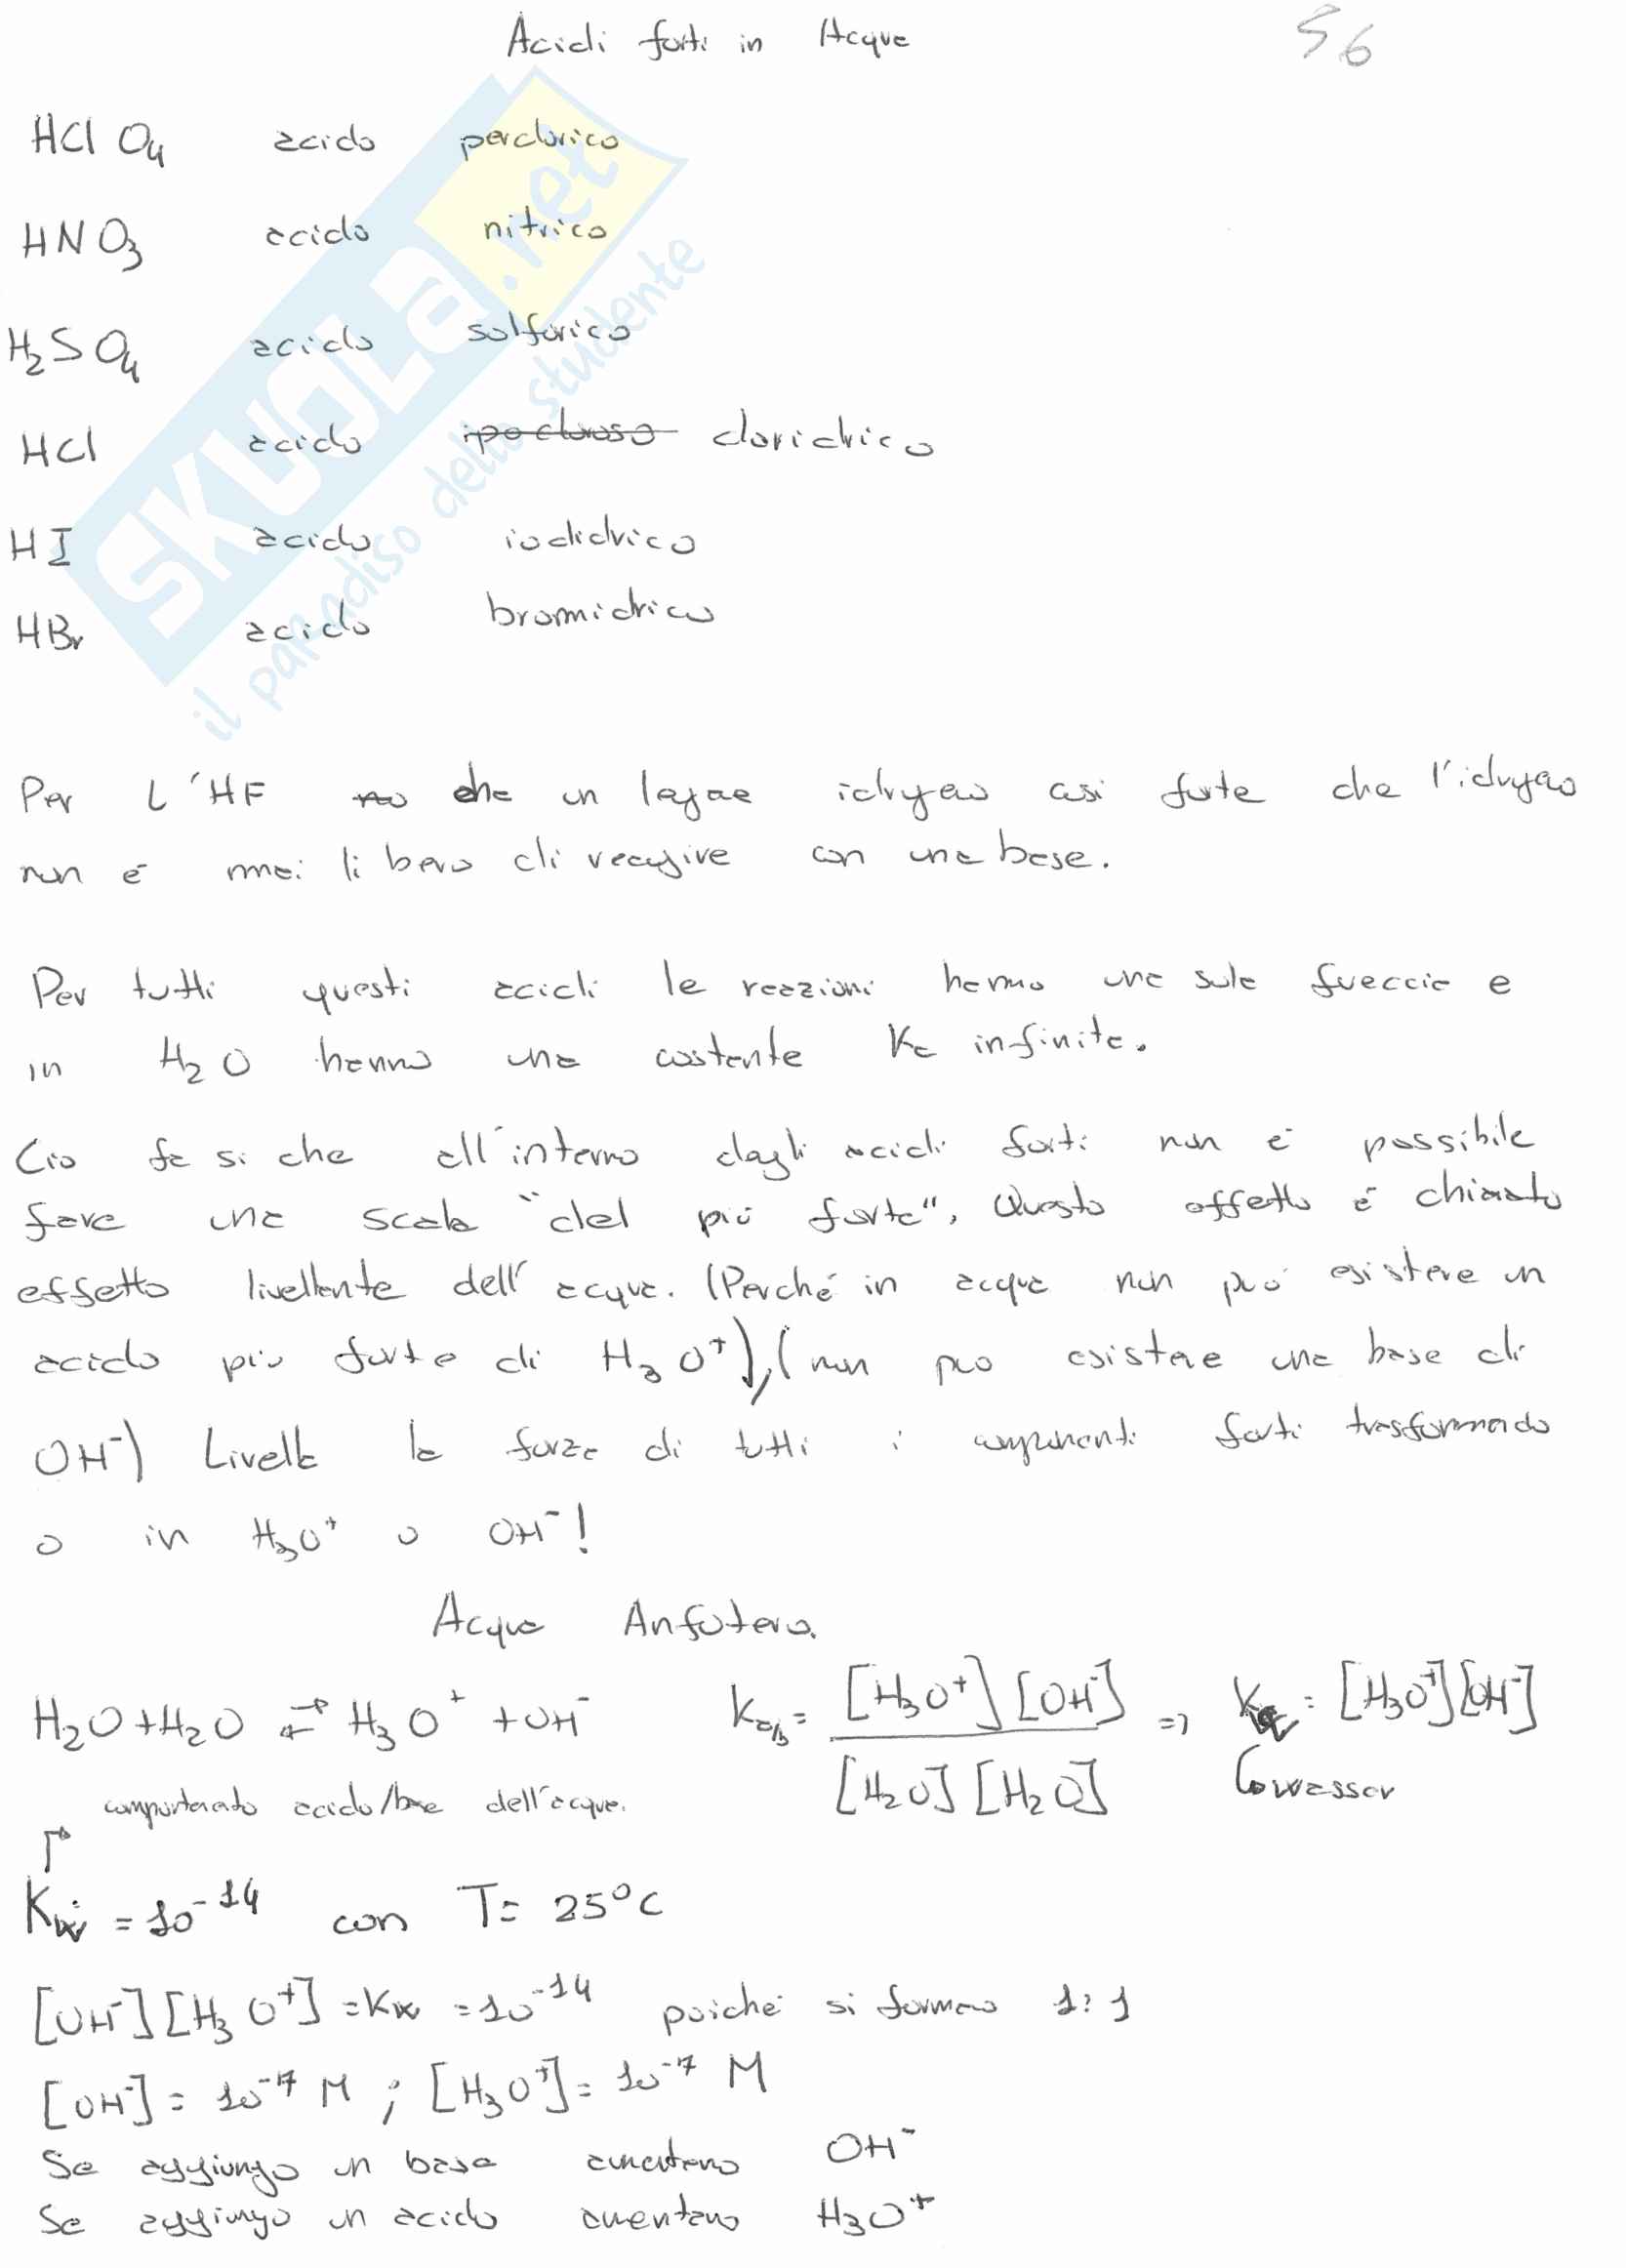 Acidi forti in Acqua
56
HClO4 acido perclorico
HNO3 acido nitrico
H2SO4 acido solforico
HCl acido ipocloroso cloridrico
HI acido iodidrico
HBr acido bromidrico
SKUOLA.net
il paradiso dello studente
Per l'HF che un legame idrogeno così forte che l'idrogeno
non è mai libero di reagire con una base.
Per tutti questi acidi le reazioni hanno una sola freccia e
in H2O hanno una costante Ka infinita.
Ciò fa si che all'interno degli acidi forti non è possibile
fare una scala "del più forte". Questo effetto è chiamato
effetto livellante dell'acqua. (Perché in acqua non può esistere un
acido più forte di H3O+), (non può esistere una base di
OH-) Livella la forza di tutti i componenti forti trasformando
o in H3O+ o OH-!
Acqua Anfotera.
H2O + H2O ⇄ H3O+ + OH- Ka/b = [H3O+][OH-] / [H2O][H2O] => K = [H3O+][OH-]
comportamento acido/base dell'acqua.
Kw = 10^-14 con T = 25°C
[OH-][H3O+] = Kw = 10^-14 poiché si formano 1:1
[OH-] = 10^-7 M ; [H3O+] = 10^-7 M
Se aggiungo un base aumentano OH-
Se aggiungo un acido aumentano H3O+